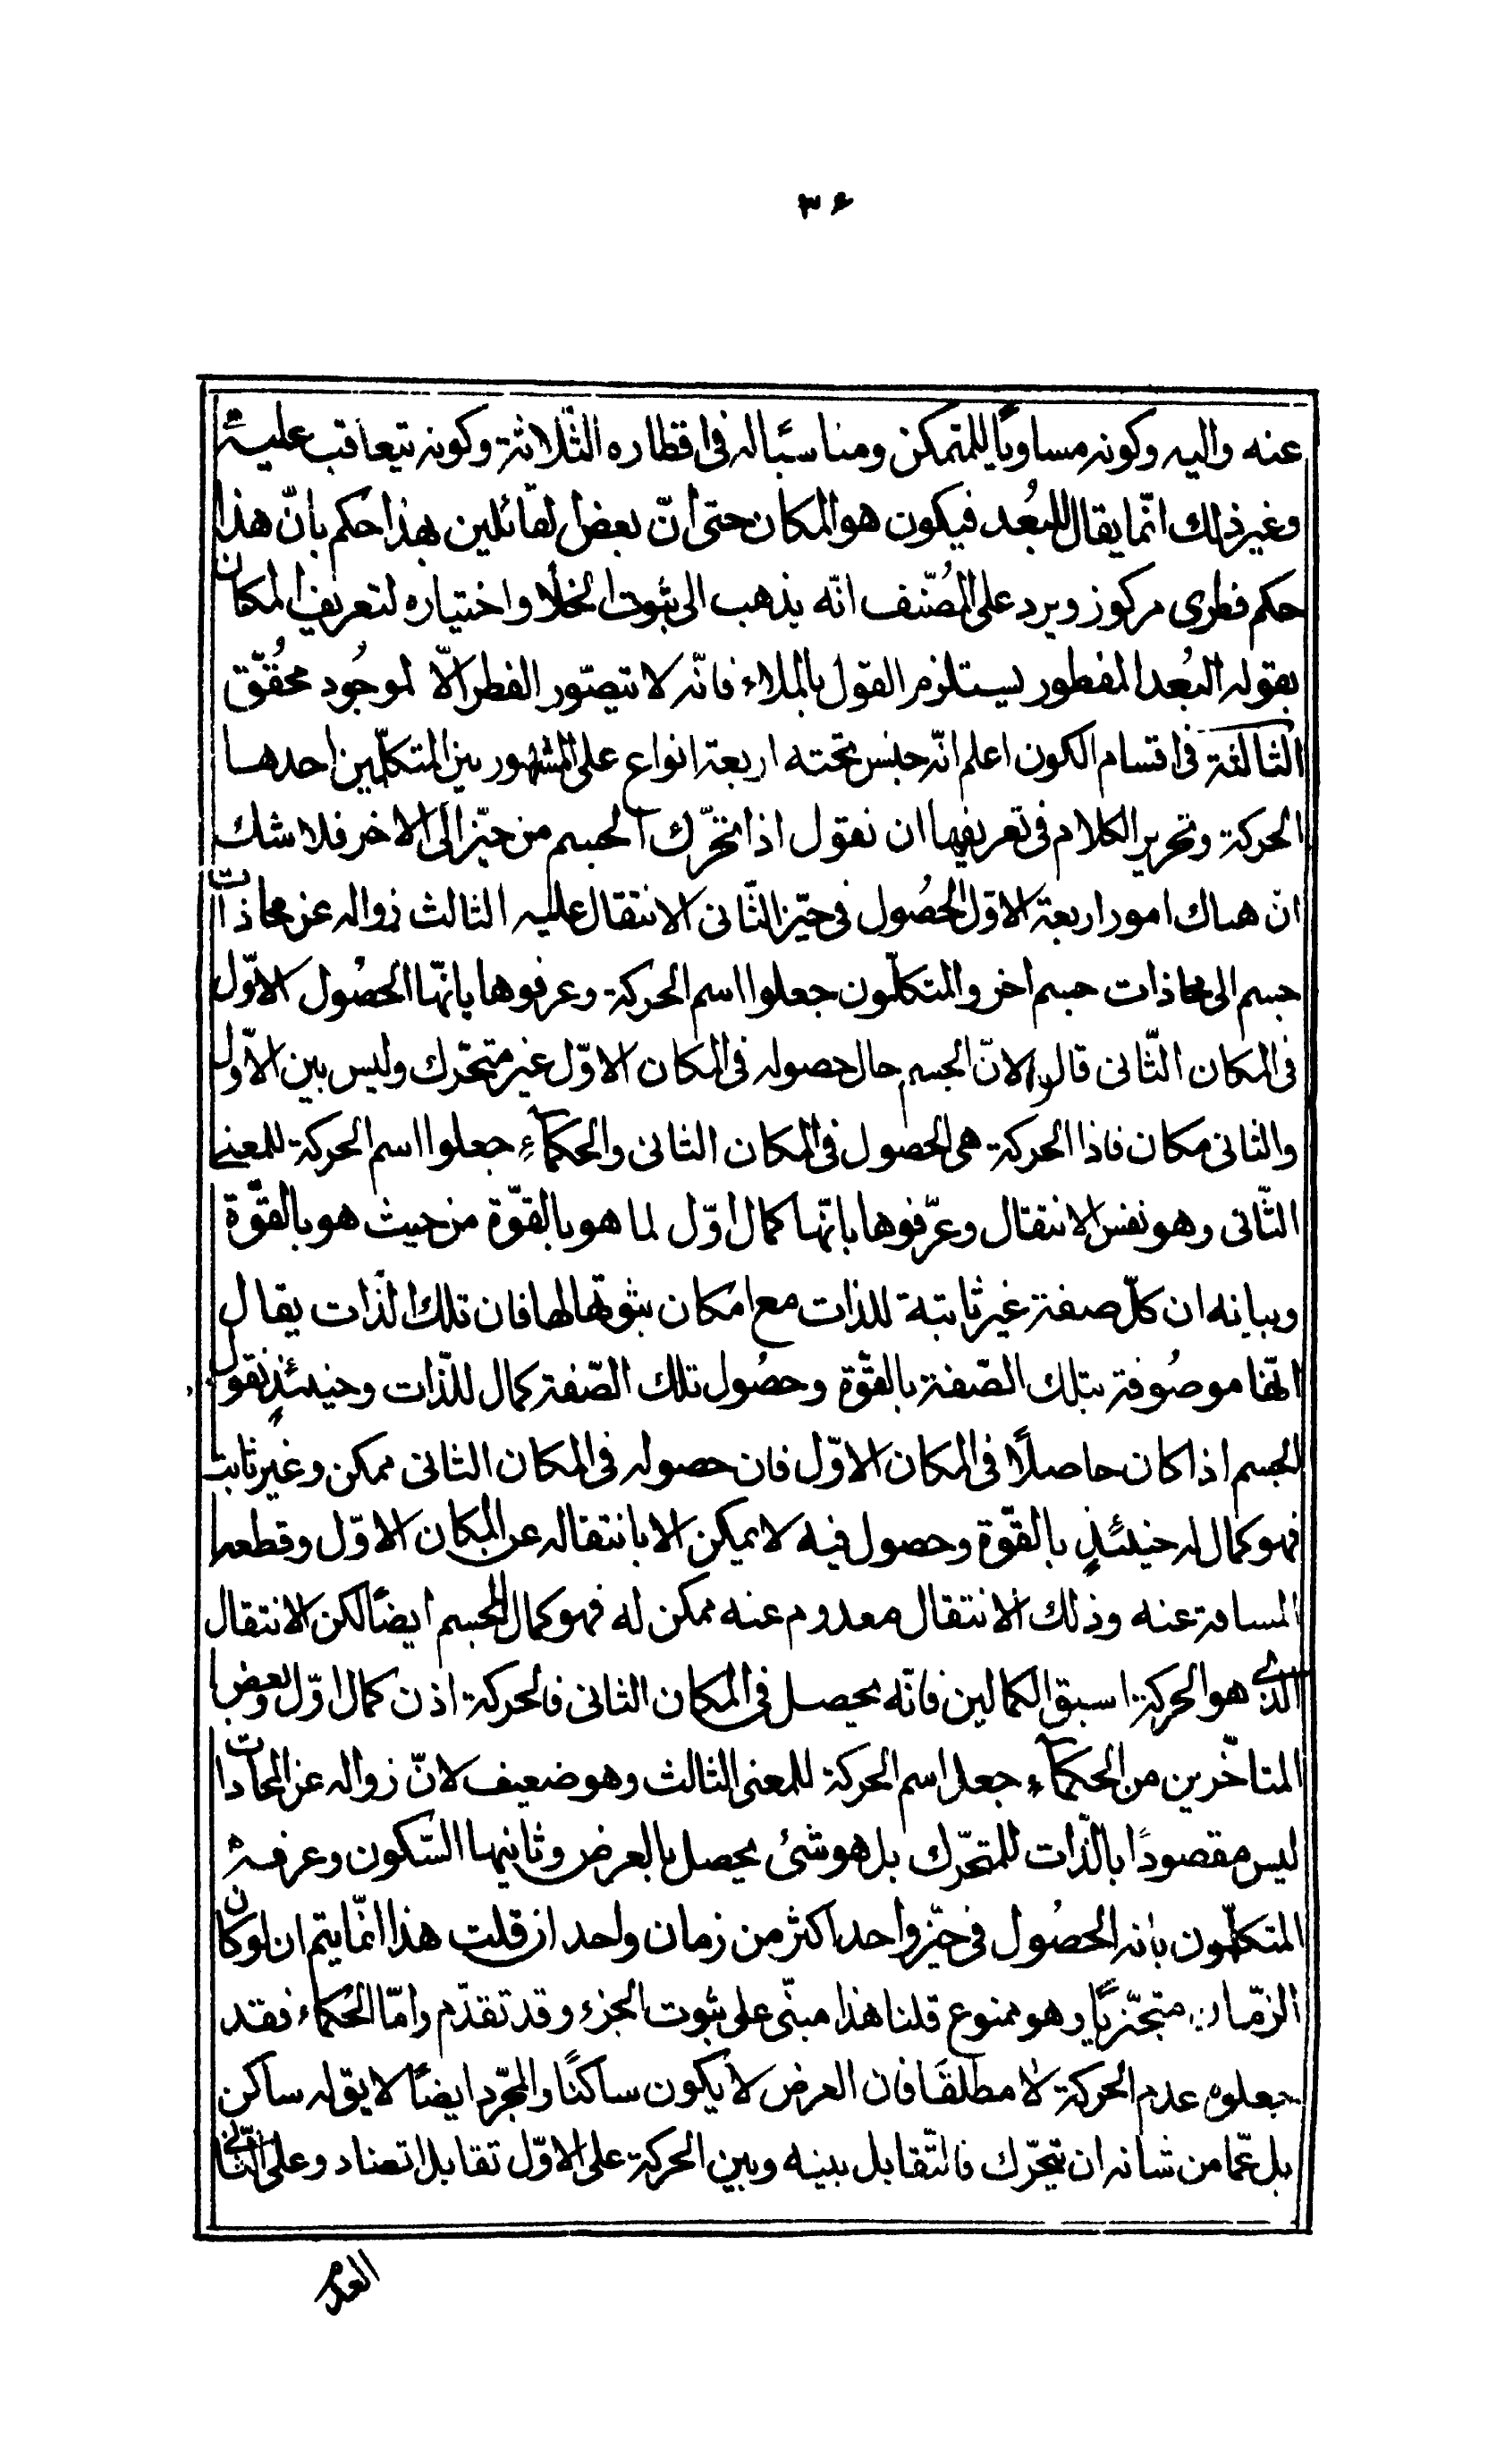 ٣۶
عنه واليه وكونه مساويًا للمتمكن ومناسبًا له فى اقطاره الثّلاثة وكونه تتعاقب عليه
وغير ذلك انّما يقال للبُعد فيكون هو المكان حتى انّ بعض لقائلين بهذا حكم بانّ هذا
حكم فطرى مركوز ويرد على المُصنّف انّه يذهب الى ثبوت الخلأ واختياره لتعريف المكان
بقوله البُعد المفطور يستلزم القول بالملاء فانّه لا تتصّور الفطر الّا لموجُود محُقّق
الثالثة فى اقسام الكون اعلم انّه جنس تحته اربعة انواع على المشهور بين المتكلّمين احدها
الحركة وتحرير الكلام فى تعريفها ان نقول اذا تحّرك الجسم من حيّز الى الاخر فلا شك
ان هناك امور اربعة الاوّل الحُصُول فى حيّز الثّانى الانتقال عليه الثالث زواله عن محاذات
جسم الى محاذات جسم اخر والمتكلّمون جعلوا اسم الحركة وعرفوها بانّها الحصُول الاوّل
فى المكان الثّانى قالوا لانّ الجسم حال حصوله فى المكان الاوّل غير متحّرك وليس بين الاوّل
والثانى مكان فاذا الحركة هى الحصُول فى المكان الثانى والحكمآء جعلوا اسم الحركة للمعنى
الثّانى وهو نفس الانتقال وعرّفوها بانّها كمال اوّل لما هو بالقوّة من حيث هو بالقوّة
وبيانه ان كلّ صفة غير ثابتة للذات مع امكان ثبوتها لها فان تلك الذات يقال
انّها موصُوفة بتلك الصّفة بالقوّة وحصُول تلك الصّفة كمال للذّات وحينئذٍ نقول
الجسم اذا كان حاصلًا فى المكان الاوّل فان حصوله فى المكان الثانى ممكن وغير ثابت
فهو كمال له حينئذٍ بالقوّة وحصول فيه لا يمكن الا بانتقاله عن المكان الاوّل وقطعه
المسافة عنه وذلك الانتقال معدوم عنه ممكن له فهو كمال للجسم ايضًا لكن الانتقال
الذى هو الحركة اسبق الكمالين فانّه يحصل فى المكان الثانى فالحركة اذن كمال اوّل وبعض
المتاخّرين من الحكمآء جعل اسم الحركة للمعنى الثالث وهو ضعيف لانّ زواله عن المحاذات
ليس مقصودًا بالّذات للمتحّرك بل هو شئ يحصل بالعرض وثانيها السّكون وعرفه
المتكلّمون بانه الحصُول فى حيّز واحد اكثر من زمان واحد ان قلت هذا انّما يتم ان لو كان
الزمّان متجّزيًا وهو ممنوع قلنا هذا مبنّى على ثبوت الجزء وقد تقدّم وامّا الحُكماء فقد
جعلوه عدم الحركة لا مطلقًا فان العرض لا يكون ساكنًا والمجّرد ايضًا لا يق له ساكن
بل عمّا من شانه ان يتحّرك فالتّقابل بينه وبين الحركة على الاوّل تقابل التضاد وعلى الثانى
العدم